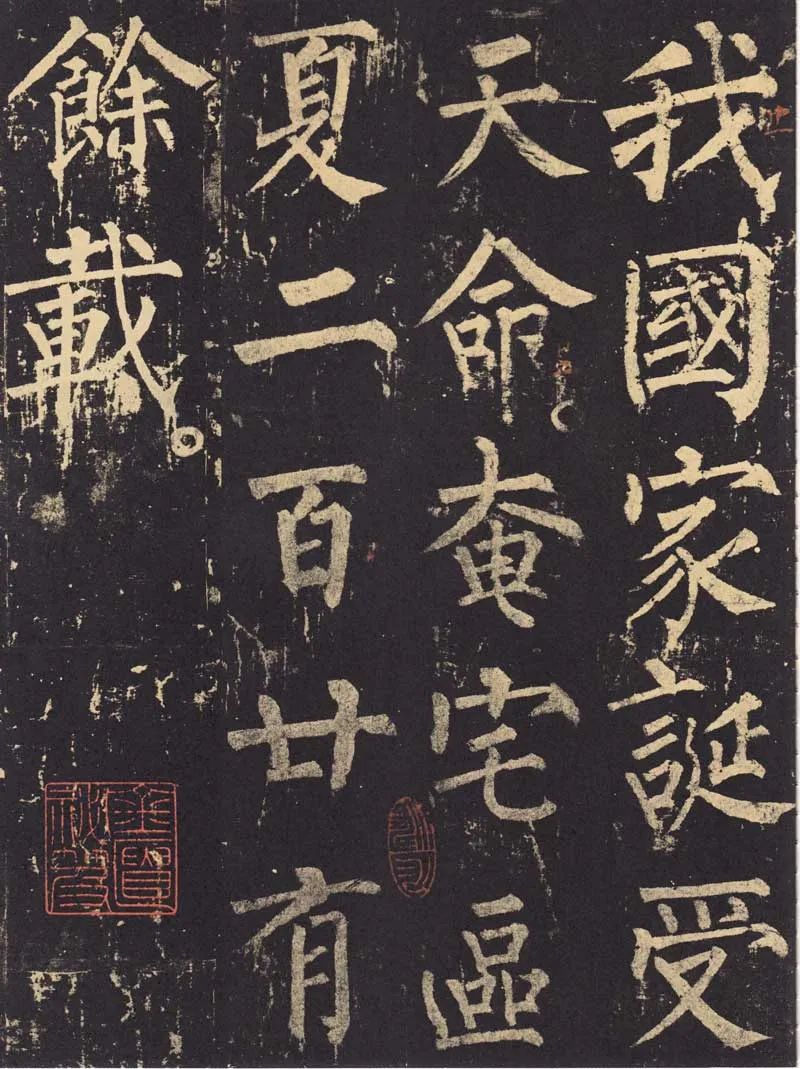 我國家誕受
天命奄宅區
夏二百廿有
餘載。